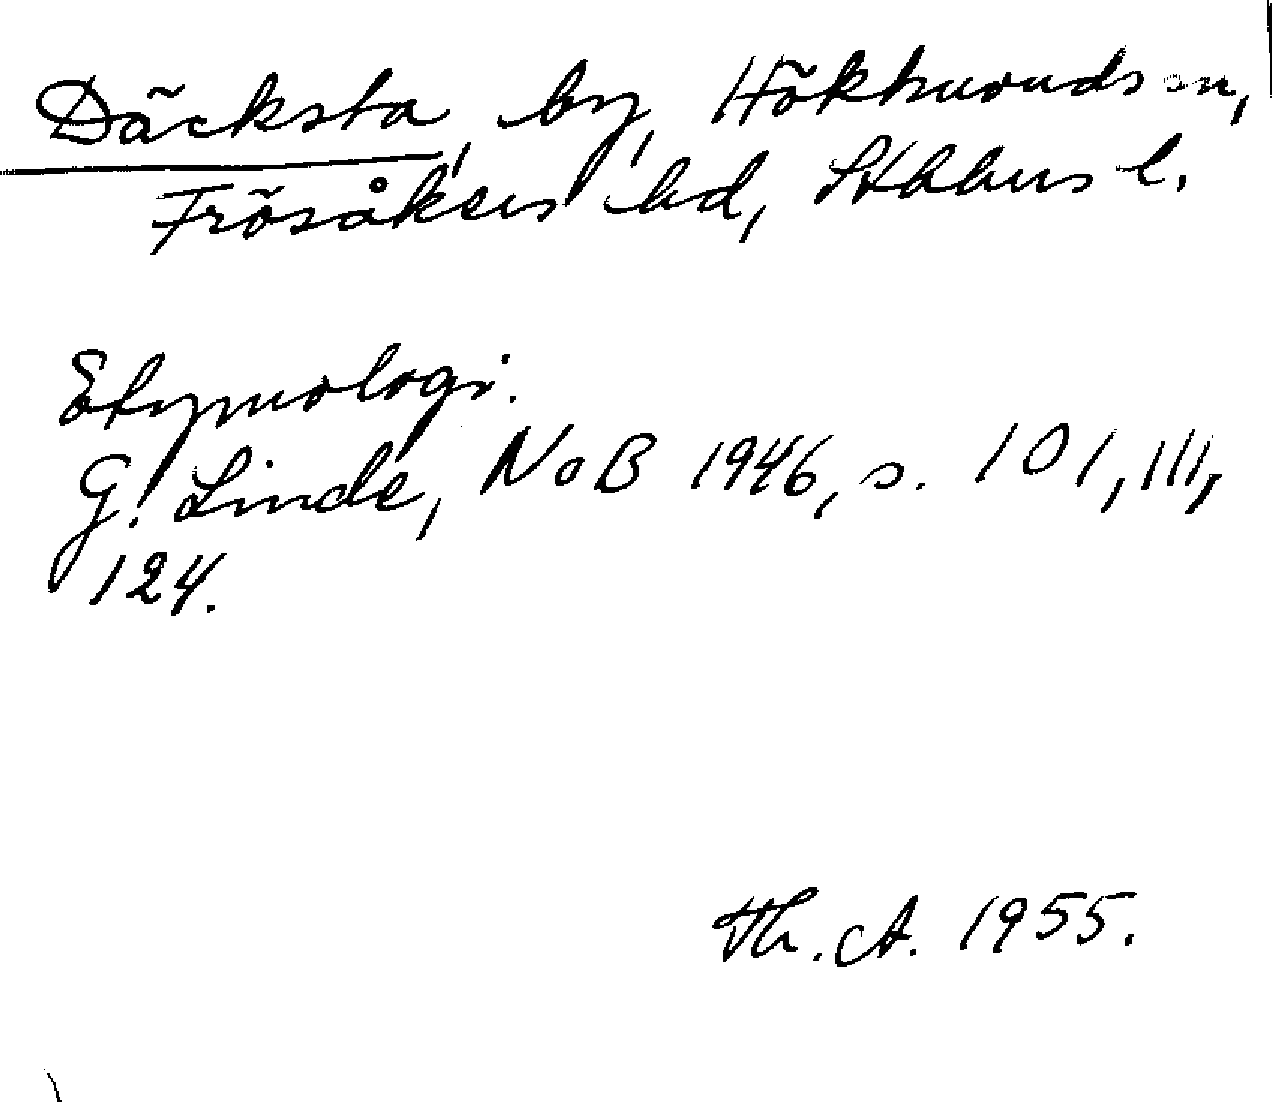 Däcksta, by, Hökhuvuds sn,
Frösåkers hd, Sthlms l.
Etymologi.
G. Linde, NoB 1946, s. 101, 111,
124.
Th. A. 1955.